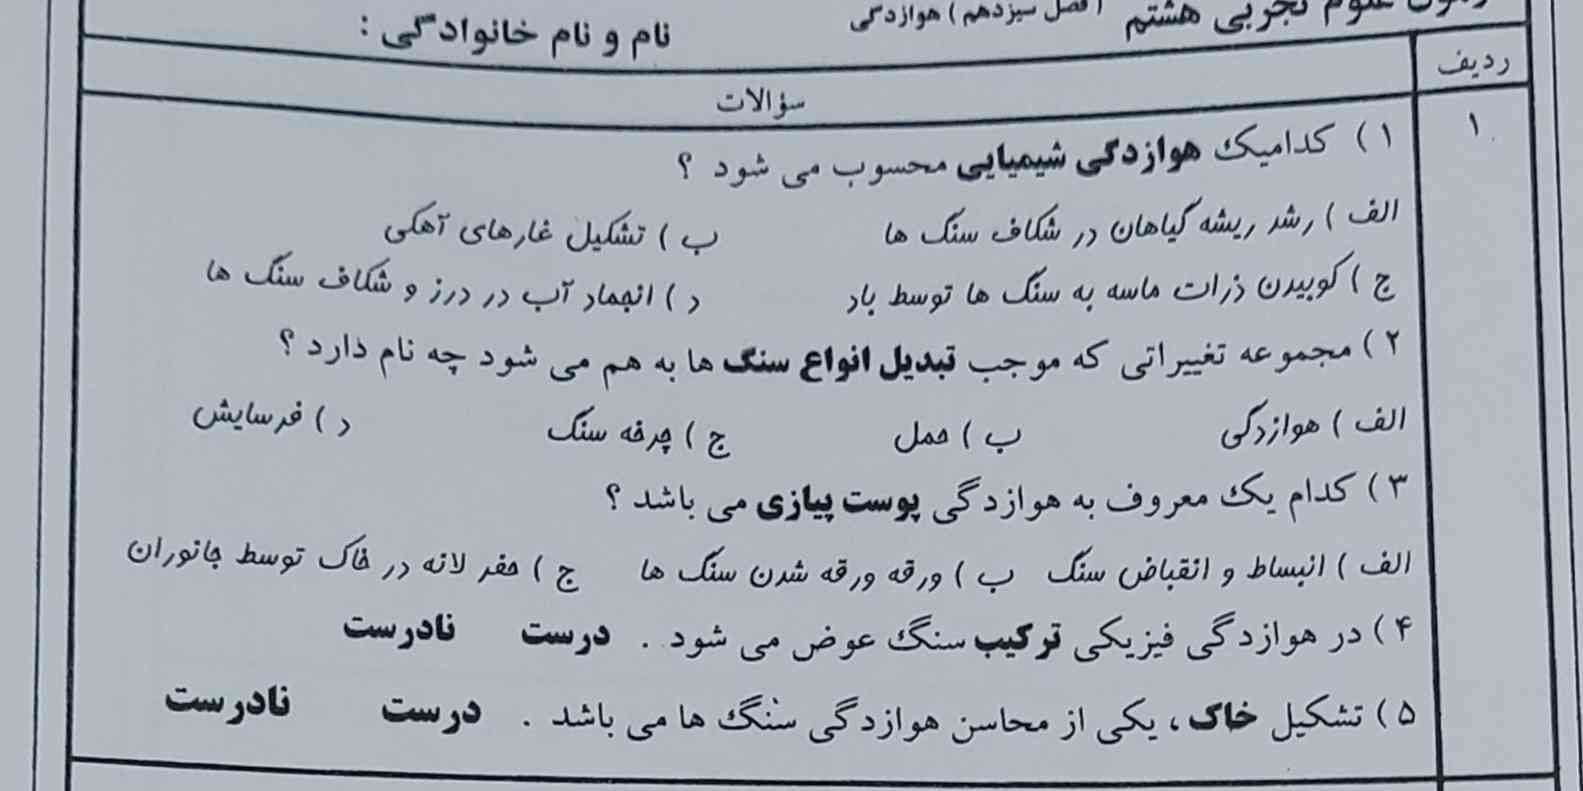 علوم تجربی هشتم ( فصل سیزدهم ) هوازدگی نام و نام خانوادگی :
ردیف
سؤالات
۱
۱ ) کدامیک هوازدگی شیمیایی محسوب می شود ؟
الف ) رشد ریشه گیاهان در شکاف سنگ ها ب ) تشکیل غارهای آهکی
ج ) کوبیدن ذرات ماسه به سنگ ها توسط باد د ) انجماد آب در درز و شکاف سنگ ها
۲ ) مجموعه تغییراتی که موجب تبدیل انواع سنگ ها به هم می شود چه نام دارد ؟
الف ) هوازدگی ب ) حمل ج ) چرخه سنگ د ) فرسایش
۳ ) کدام یک معروف به هوازدگی پوست پیازی می باشد ؟
الف ) انبساط و انقباض سنگ ب ) ورقه ورقه شدن سنگ ها ج ) حفر لانه در خاک توسط جانوران
۴ ) در هوازدگی فیزیکی ترکیب سنگ عوض می شود . درست نادرست
۵ ) تشکیل خاک ، یکی از محاسن هوازدگی سنگ ها می باشد . درست نادرست